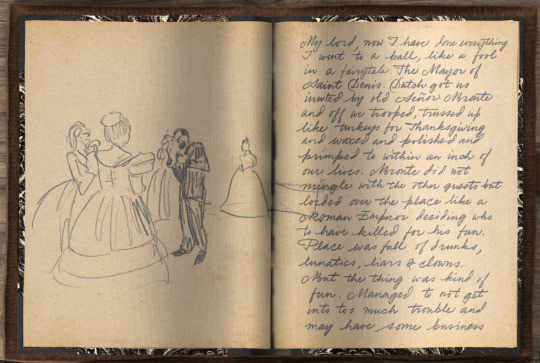 My lord, now I have done everything
I went to a ball, like a fool
in a fairytale. The Mayor of
Saint Denis. Dutch got us
invited by old Señor Bronte
and off we trooped, trussed up
like turkeys for Thanksgiving
and waxed and polished and
primped to within an inch of
our lives. Bronte did not
mingle with the other guests but
lorded over the place like a
Roman Emperor deciding who
to have killed for his fun.
Place was full of drunks,
lunatics, liars & clowns.
But the thing was kind of
fun. Managed to not get
into too much trouble and
may have some business